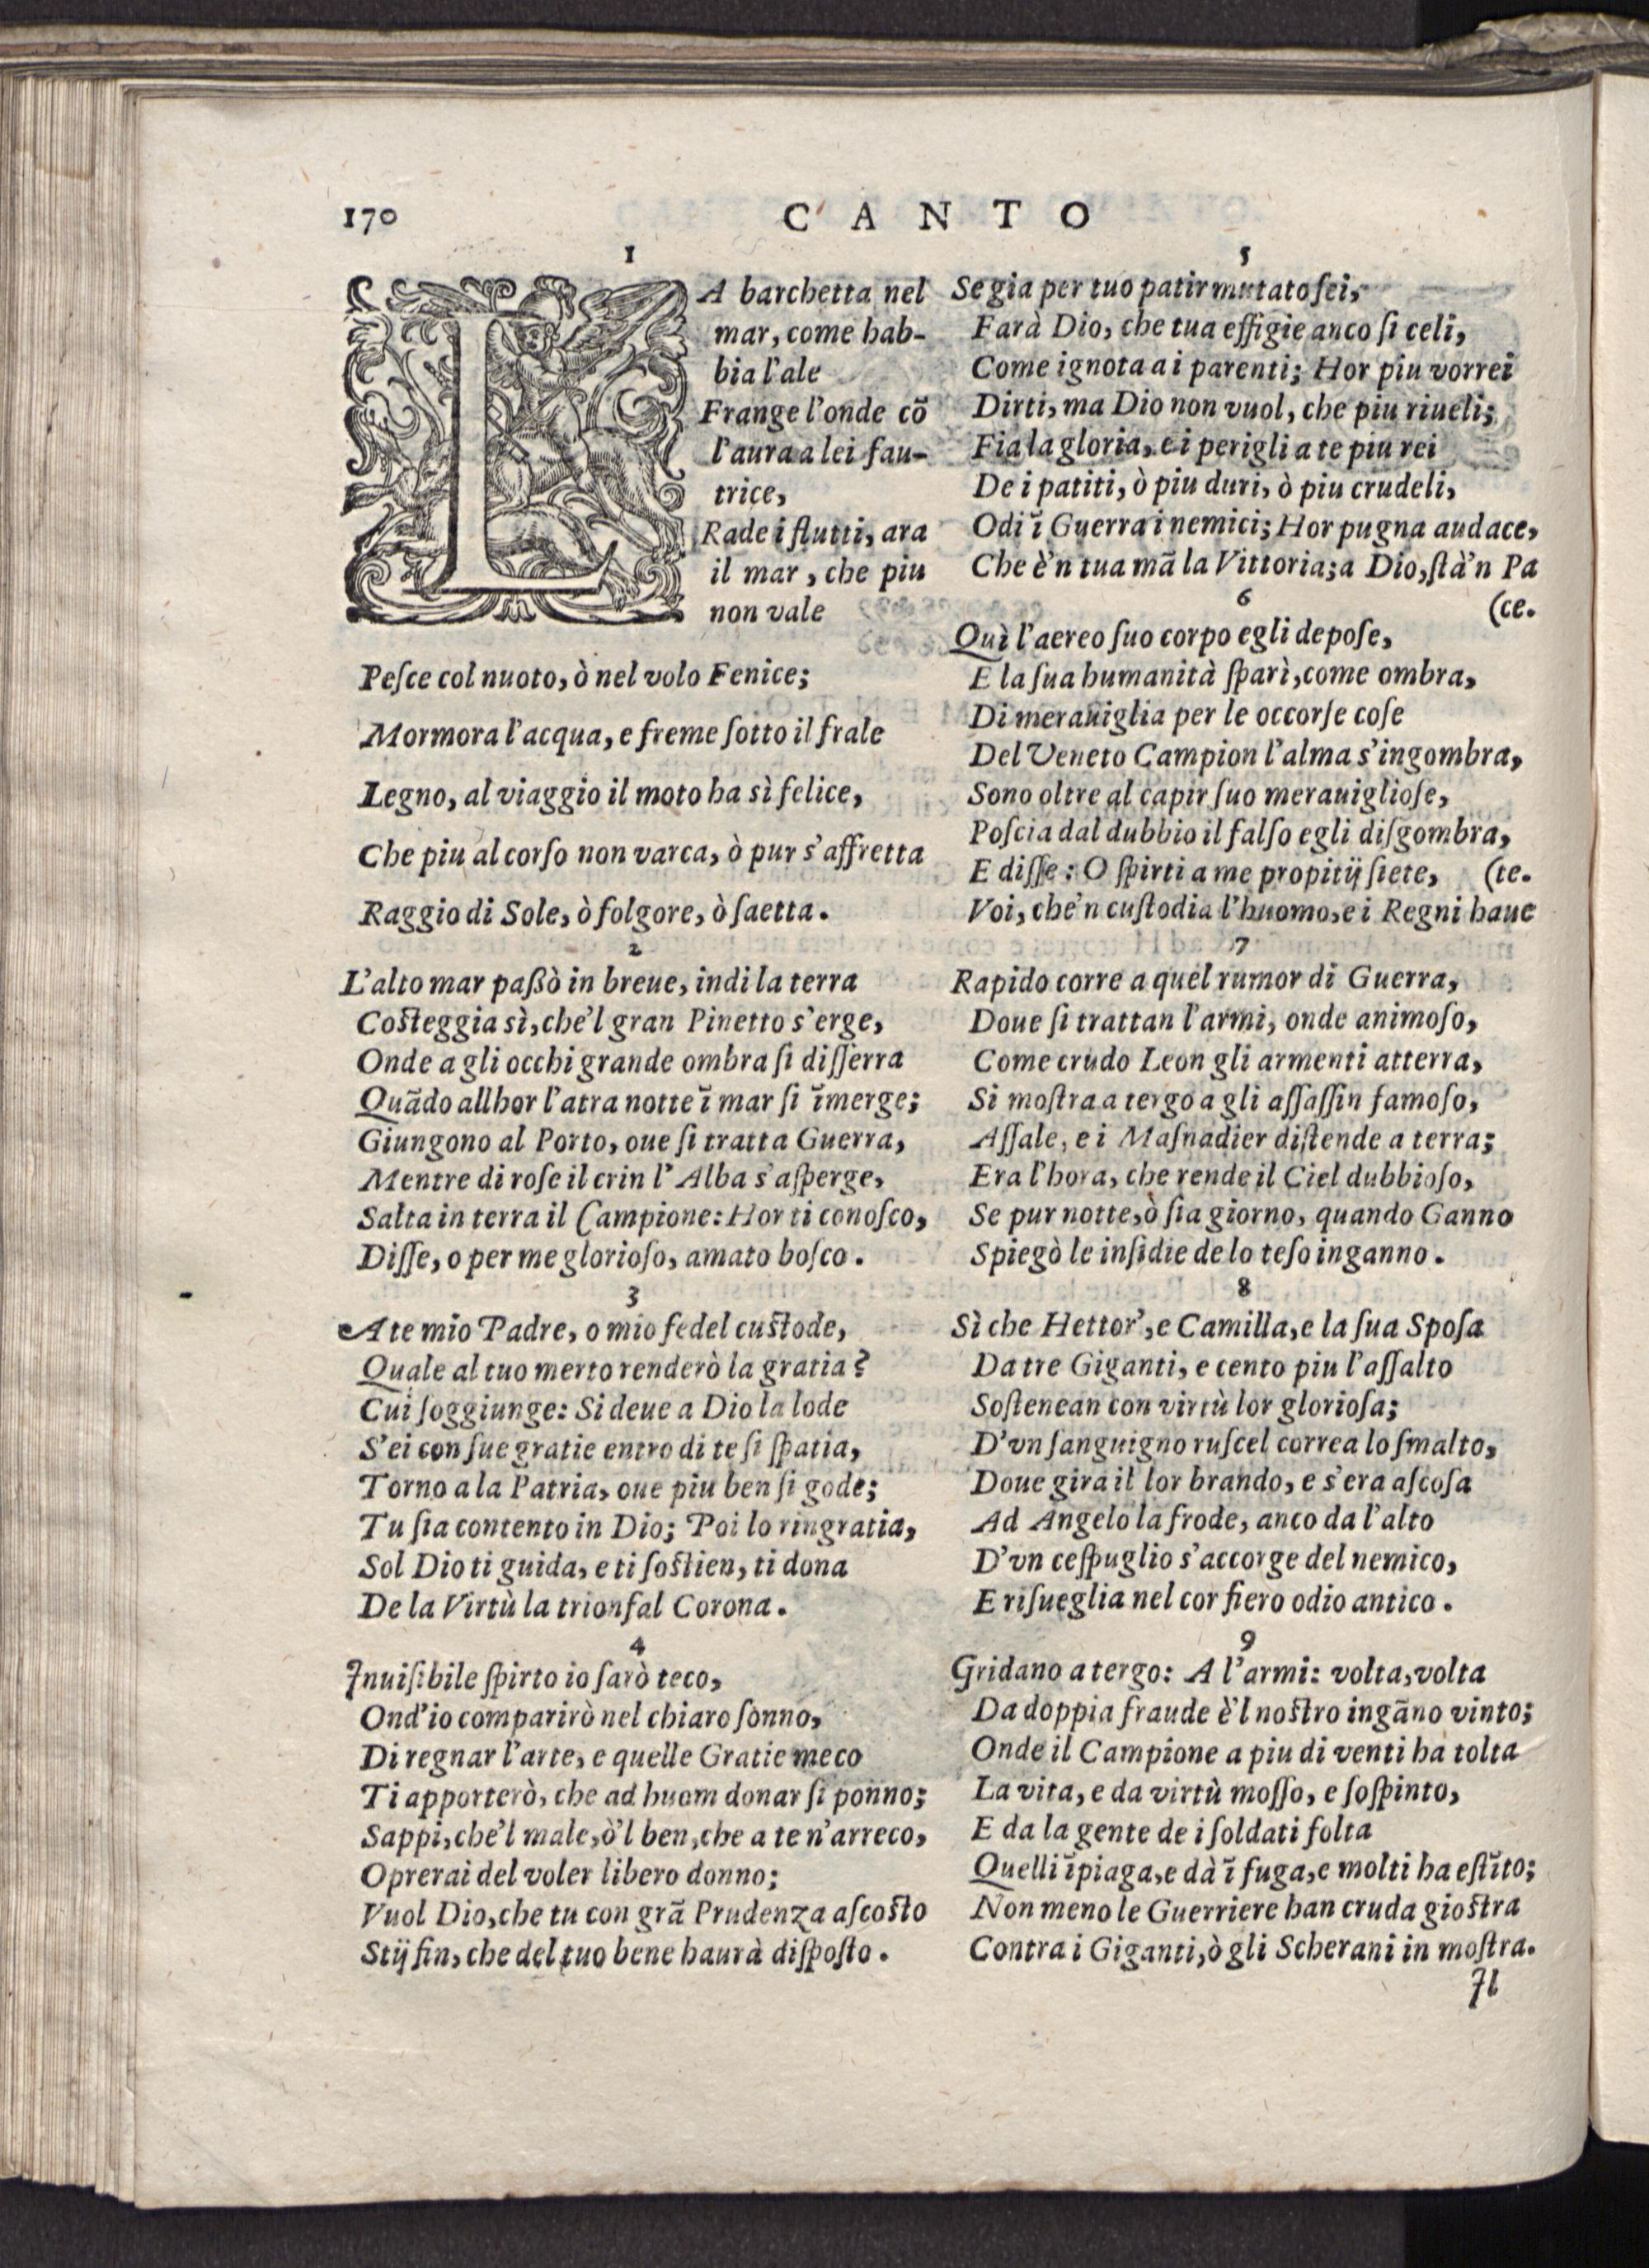 170
CANTO
1
LA barchetta nel
mar, come hab-
bia l'ale
Frange l'onde cõ
l'aura a lei fau-
trice,
Rade i flutti, ara
il mar, che piu
non vale
Peſce col nuoto, ò nel volo Fenice;
Mormora l'acqua, e freme ſotto il frale
Legno, al viaggio il moto ha sì felice,
Che piu al corſo non varca, ò pur s'affretta
Raggio di Sole, ò folgore, ò ſaetta.
2
L'alto mar paßò in breue, indi la terra
Coſteggia sì, che'l gran Pinetto s'erge,
Onde a gli occhi grande ombra ſi diſſerra
Quãdo allhor l'atra notte ĩ mar ſi ĩmerge;
Giungono al Porto, oue ſi tratta Guerra,
Mentre di roſe il crin l'Alba s'aſperge,
Salta in terra il Campione: Hor ti conoſco,
Diſſe, o per me glorioſo, amato boſco.
3
A te mio Padre, o mio fedel cuſtode,
Quale al tuo merto renderò la gratia?
Cui ſoggiunge: Si deue a Dio la lode
S'ei con ſue gratie entro di te ſi ſpatia,
Torno a la Patria, oue piu ben ſi gode;
Tu ſia contento in Dio; Poi lo ringratia,
Sol Dio ti guida, e ti ſoſtien, ti dona
De la Virtù la trionfal Corona.
4
Inuiſibile ſpirto io ſarò teco,
Ond'io comparirò nel chiaro ſonno,
Di regnar l'arte, e quelle Gratie meco
Ti apporterò, che ad huom donar ſi ponno;
Sappi, che'l male, ò'l ben, che a te n'arreco,
Oprerai del voler libero donno;
Vuol Dio, che tu con grã Prudenza aſcoſto
Stij fin, che del tuo bene haurà diſpoſto.
5
Se gia per tuo patir mutato ſei,
Farà Dio, che tua effigie anco ſi celi,
Come ignota a i parenti; Hor piu vorrei
Dirti, ma Dio non vuol, che piu riueli;
Fia la gloria, e i perigli a te piu rei
De i patiti, ò piu duri, ò piu crudeli,
Odi ĩ Guerra i nemici; Hor pugna audace,
Che è'n tua mã la Vittoria; a Dio, ſtà'n Pa
(ce.
6
Quì l'aereo ſuo corpo egli depoſe,
E la ſua humanità ſparì, come ombra,
Di merauiglia per le occorſe coſe
Del Veneto Campion l'alma s'ingombra,
Sono oltre al capir ſuo merauiglioſe,
Poſcia dal dubbio il falſo egli diſgombra,
E diſſe: O ſpirti a me propitij ſiete, (te.
Voi, che'n cuſtodia l'huomo, e i Regni haue
7
Rapido corre a quel rumor di Guerra,
Doue ſi trattan l'armi, onde animoſo,
Come crudo Leon gli armenti atterra,
Si moſtra a tergo a gli aſſaſſin famoſo,
Aſſale, e i Maſnadier diſtende a terra;
Era l'hora, che rende il Ciel dubbioſo,
Se pur notte, ò ſia giorno, quando Ganno
Spiegò le inſidie de lo teſo inganno.
8
Sì che Hettor', e Camilla, e la ſua Spoſa
Da tre Giganti, e cento piu l'aſſalto
Soſtenean con virtù lor glorioſa;
D'vn ſanguigno ruſcel correa lo ſmalto,
Doue gira il lor brando, e s'era aſcoſa
Ad Angelo la frode, anco da l'alto
D'vn ceſpuglio s'accorge del nemico,
E riſueglia nel cor fiero odio antico.
9
Gridano a tergo: A l'armi: volta, volta
Da doppia fraude è'l noſtro ingãno vinto;
Onde il Campione a piu di venti ha tolta
La vita, e da virtù moſſo, e ſoſpinto,
E da la gente de i ſoldati folta
Quelli ĩpiaga, e dà ĩ fuga, e molti ha eſtĩto;
Non meno le Guerriere han cruda gioſtra
Contra i Giganti, ò gli Scherani in moſtra.
Il